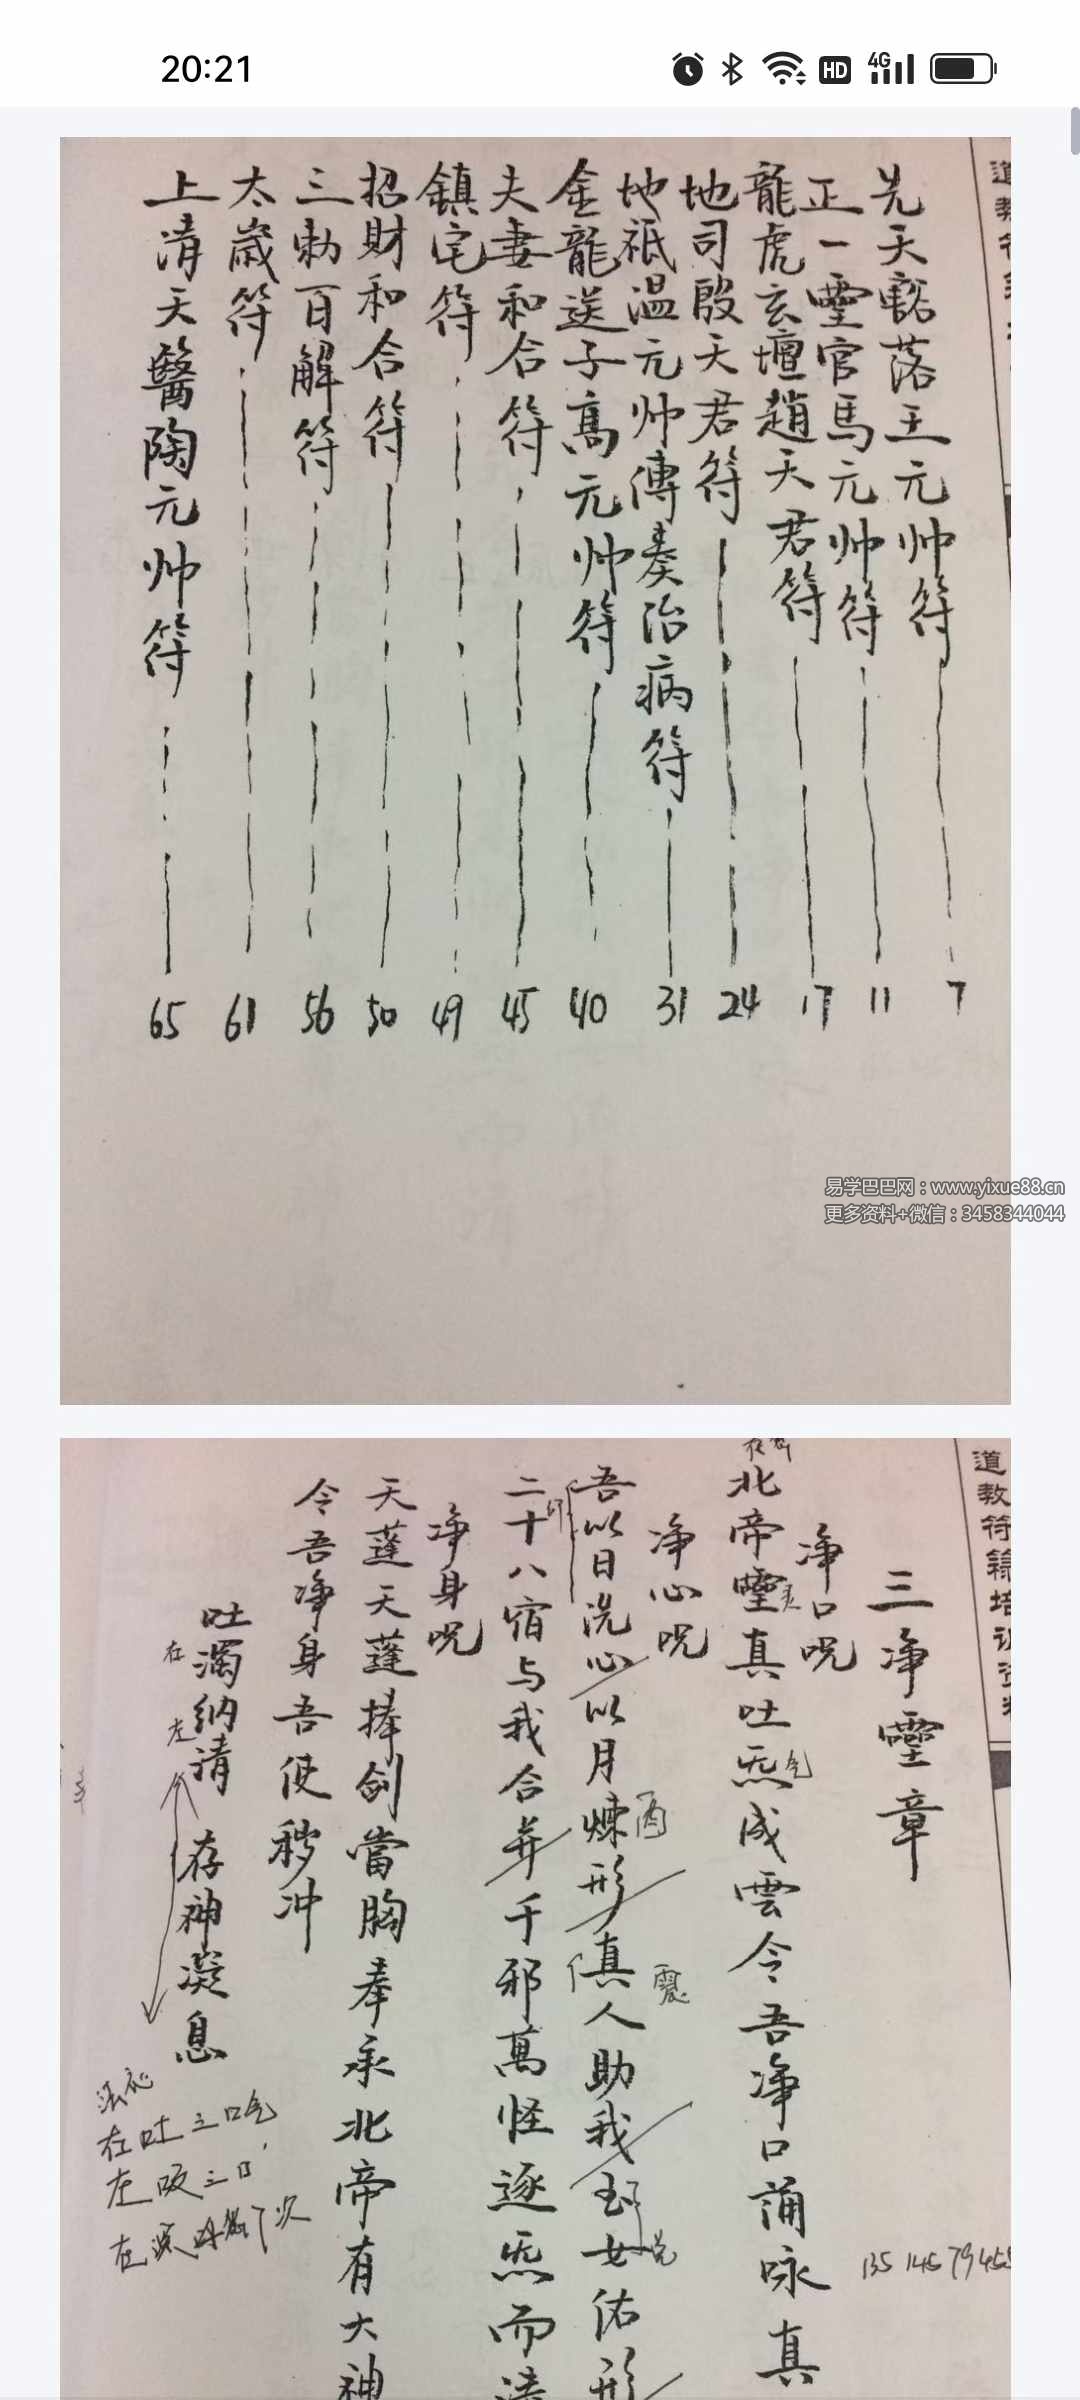 20:21
HD
4G
先天豁落王元帅符 7
正一靈官馬元帅符 11
龍虎玄壇趙天君符 17
地司殷天君符 24
地祇温元帅傳奏治病符 31
金龍送子高元帅符 40
夫妻和合符 45
鎮宅符 49
招財和合符 50
三勅百解符 56
太歲符 61
上清天醫陶元帅符 65
易学巴巴网：www.yixue88.cn
更多资料+微信：3458344044
道教符籙培训资料
三净靈章
净口呪
北帝靈真吐炁成雲令吾净口誦咏真
灵
气
净心呪
吾以日洗心以月煉形真人助我玉女佑形
酉
震
二十八宿与我合并千邪萬怪逐炁而清
印
净身呪
天蓬天蓬捧剑當胸奉承北帝有大神
令吾净身吾使秽冲
吐濁纳清 存神凝息
右
左
右吐三口气
左吸三口